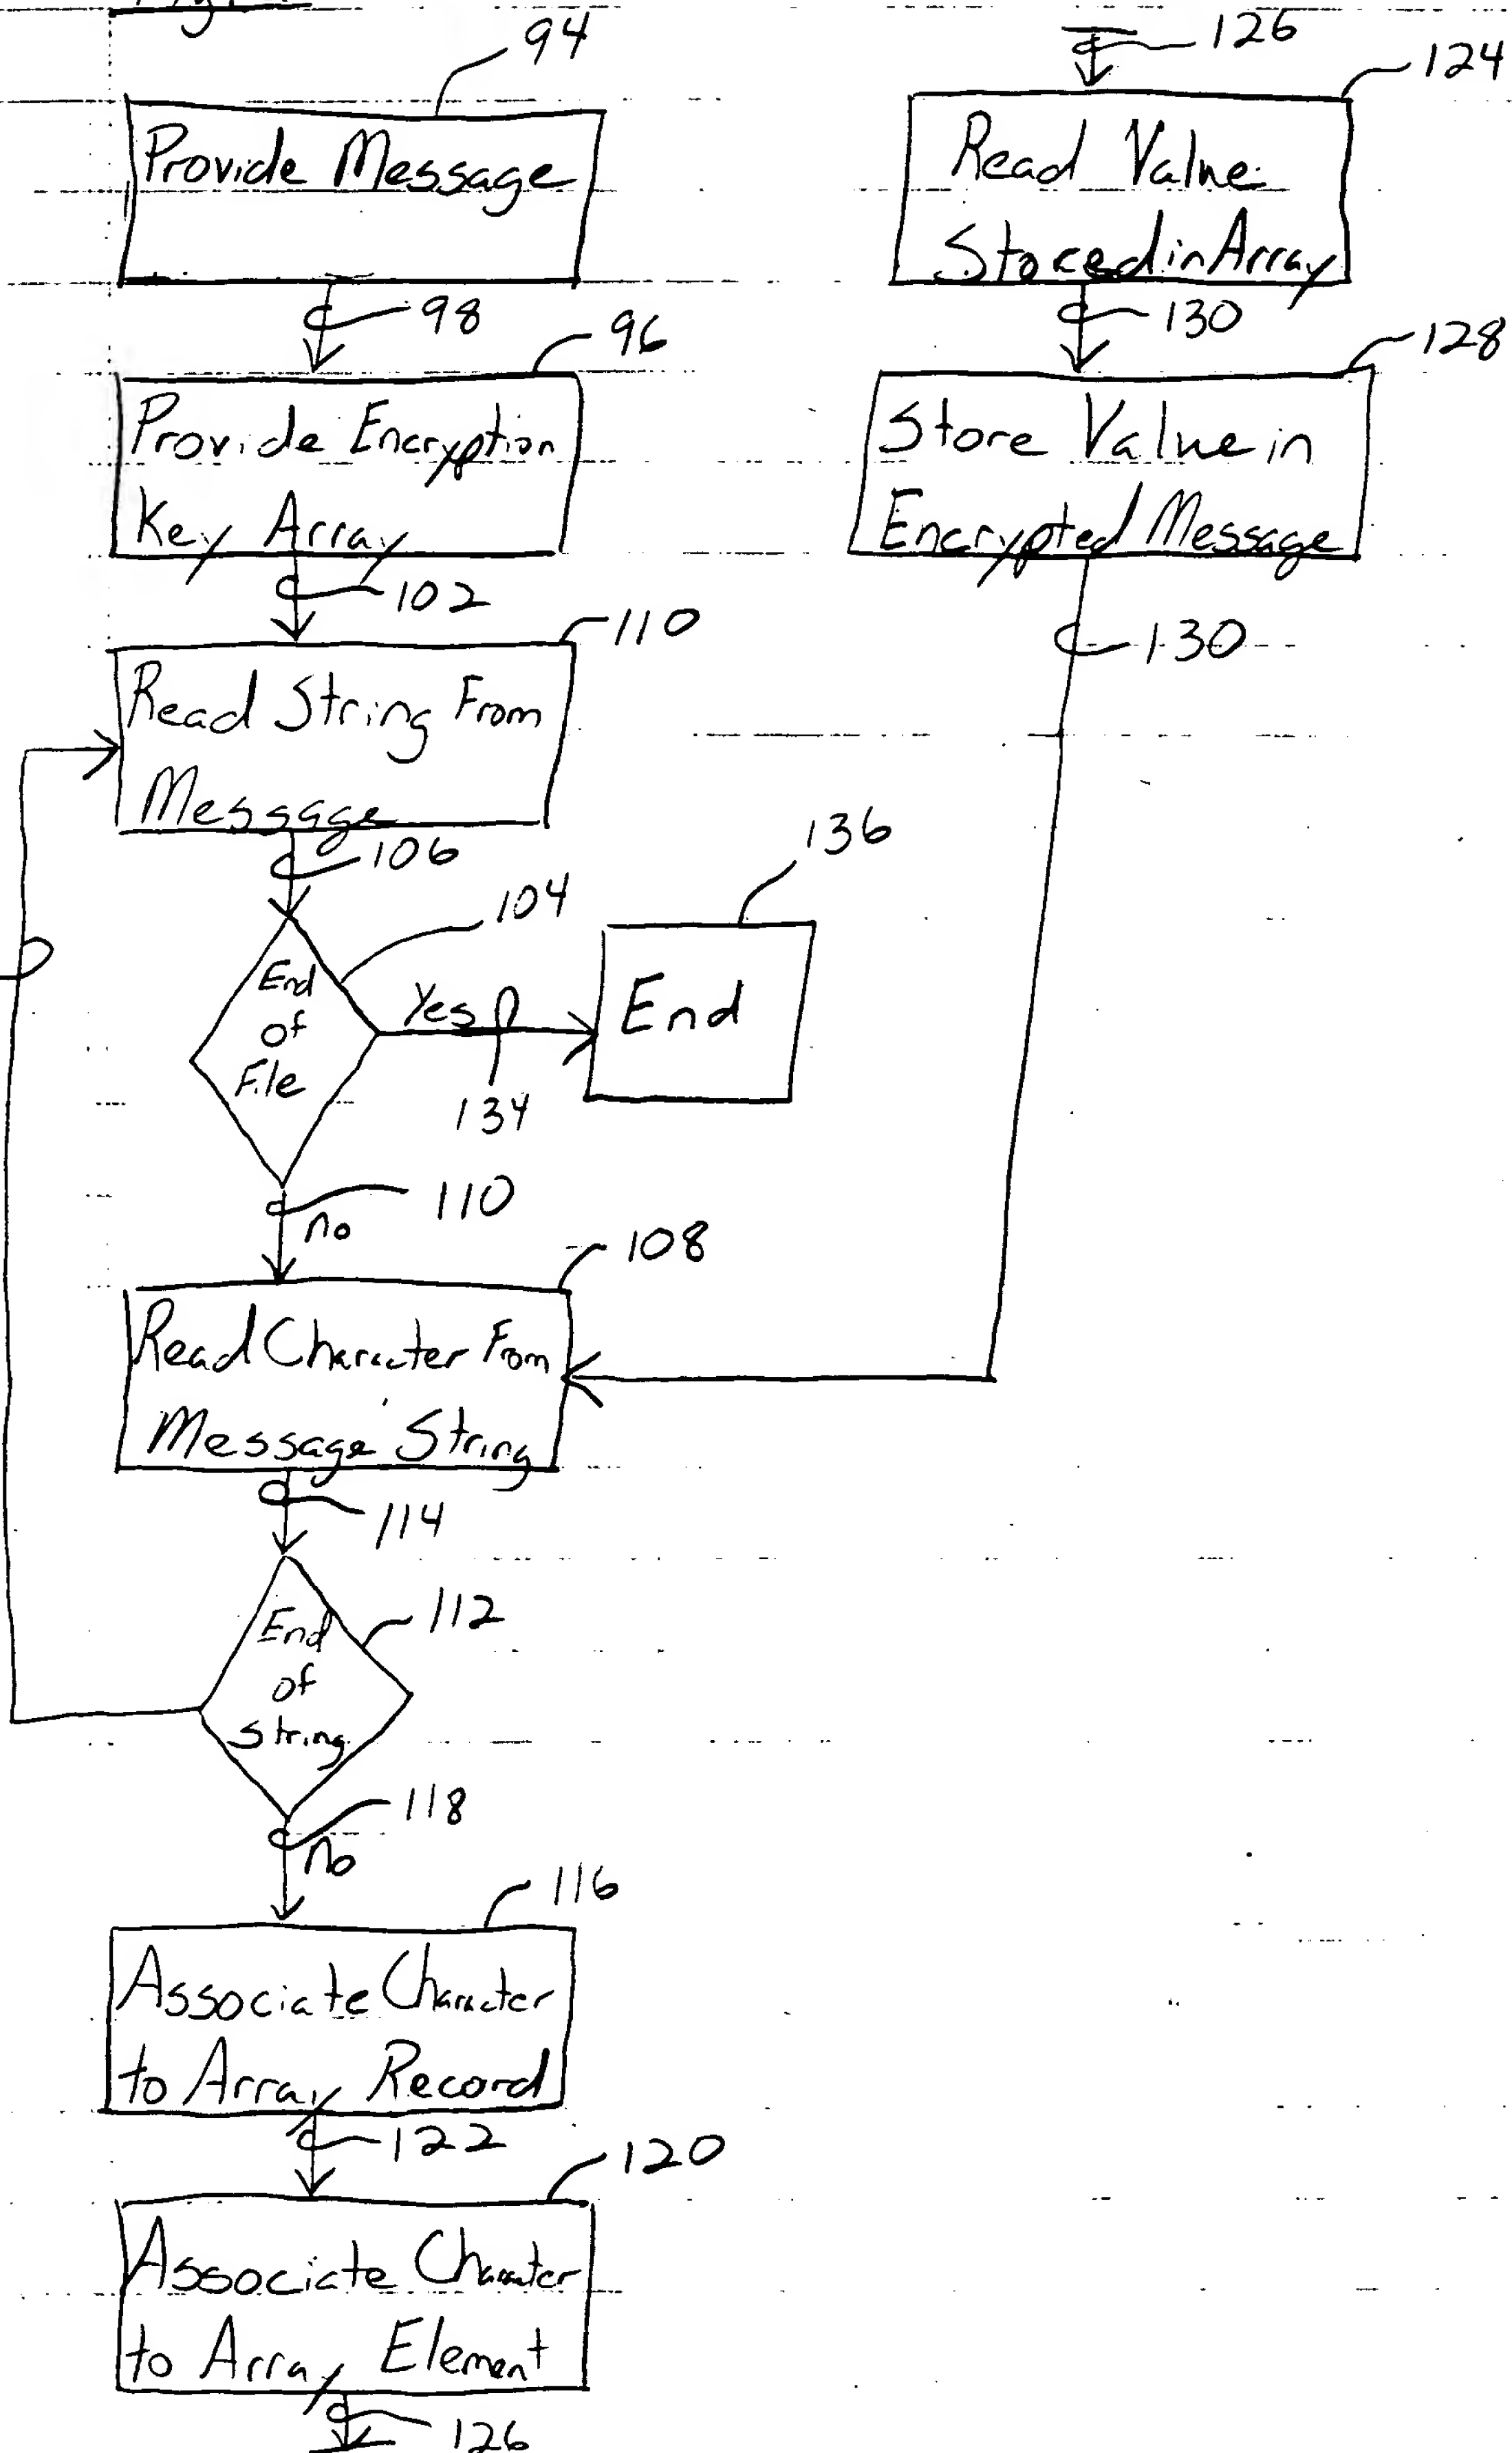 94
Provide Message
98
96
Provide Encryption
Key Array
102
110
Read String From
Message
106
104
End
of
File
Yes
134
136
End
110
no
108
Read Character From
Message String
114
112
End
of
String
118
no
116
Associate Character
to Array Record
122
120
Associate Character
to Array Element
126
126
124
Read Value
Stored in Array
130
128
Store Value in
Encrypted Message
130